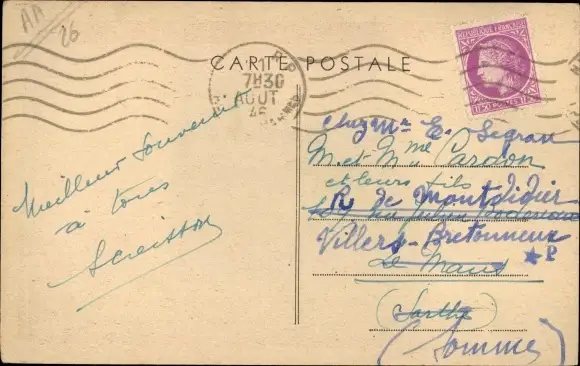 AA
26
CARTE POSTALE
7H30
AOUT
46
REPUBLIQUE FRANÇAISE
POSTES
Meilleur Souvenir
à tous
chez Mr E. Segran
M. et Mme Cardon
et leurs fils
R. de Montdidier
Villers-Bretonneux
Le Mans
(Sarthe)
(Somme)